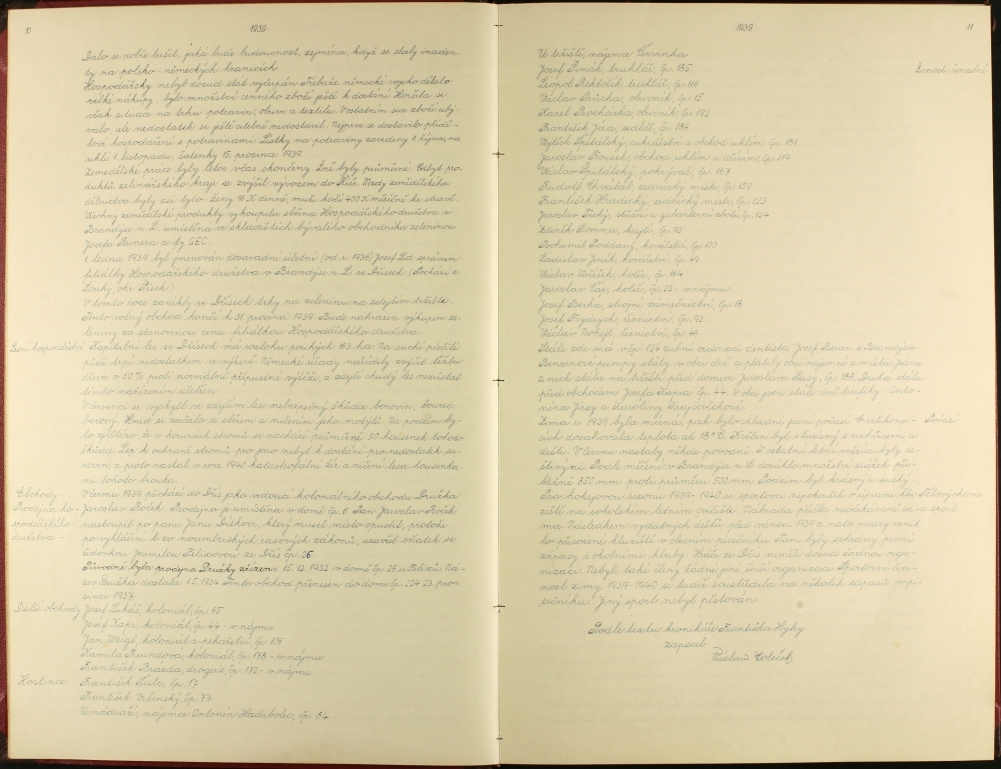 10
1939
Dalo se dobře tušit, jaká bude budoucnost, zejména, když se staly inciden-
ty na polsko-německých hranicích
Hospodářsky nebyl dosud stát vyčerpán Třebaže německé vojsko dělalo
velké nákupy, bylo množství cenného zboží ještě k dostání Horšila se
však situace na trhu potravin, obuvi a textilu V ostatním sice zboží ubý-
valo, ale nedostatek se ještě citelně nedostavil. Nejprve se dostavilo přídě-
lové hospodaření s potravinami Lístky na potraviny zavedeny 1 října, na
uhlí 1 listopadu, šatenky 15. prosince 1939.
Zemědělské práce byly letos včas skončeny Žně byly průměrné Odbyt pro-
duktů zelinářského kraje se zvýšil vývozem do Říše. Mzdy zemědělského
dělnictva byly asi tyto - ženy 16 K denně, muži koči 400 K měsíčně ke stravě.
Všechny zemědělské produkty vykoupila sběrna Hospodářského družstva v
Brandýse n. L, umístěna ve skladištích bývalého obchodníka zeleninou
Josefa Runera a fy GEC.
1 ledna 1939 byl jmenován dosavadní účetní (od r. 1936) Josef Lid správcem
filiálky Hospodářského družstva v Brandýse n. L. ve Dřísech (Pochází z
Louky, okr. Písek)
V tomto roce zanikly ve Dřísech trhy na zeleninu na zdejším tržišti.
Tento volný obchod končí k 31 prosinci 1939. Bude nahrazen výkupem ze-
leniny za stanovenou cenu filiálkou Hospodářského družstva
Lesní hospodářství Kapitulní les ve Dřísech má rozlohu pouhých 163 ha. Na suché písčité
půdě trpí nedostatkem ve výživě Německé úřady nařídily zvýšit těžbu
dřeva o 50 % proti normální přípustné výtěži, a zdejší chudý les nezůstal
tímto nařízením ušetřen
V červenci se vyskytl ve zdejším lese nebezpečný škůdce borovin, bourec
borový. Hned se začalo se sběrem a ničením jeho motýlů. Na podzim by-
lo zjištěno, že v korunách stromů se nachází průměrně 50 housenek tohoto
škůdce Lep k ochraně stromů, pro jaro nebyl k dostání pro nedostatek su-
rovin, a proto nastal v roce 1940 katastrofální žír a ničení lesa housenka-
mi tohoto brouka.
Obchody V červnu 1939 přichází do Dřís jako vedoucí koloniálního obchodu Družka
Prodejna ho- Jaroslav Roček Prodejna je umístěna v domě čp. 6 Pan Jaroslav Roček
spodářského nastoupil po panu Janu Díškovi, který musel místo opustit, protože
družstva - po vyhlášení t zv norimberských rasových zákonů, uzavřel sňatek se
židovkou Jarmilou Pelicovou ze Dřís čp. 26
Původně byla prodejna Družky zřízena 15. 12. 1932 v domě čp. 26 u Peliců. Ná-
zev Družka dostala 1.5.1934. Tento obchod přenesen do domu čp. 224 23. pro-
since 1937.
Další obchody Josef Lukáš, koloniál, čp. 65
Josef Kapr, koloniál, čp. 44 - v nájmu
Jan Weigl, koloniál a pekařství, čp. 106
Kamila Freundová, koloniál, čp. 178 - v nájmu
František Brázda, drogerie, čp. 172 - v nájmu
Hostince František Šulc, čp. 17
František Vrbenský, čp. 77
U nádraží, nájemce Antonín Hadrbolec, čp. 84
1939
11
U tržiště, nájemce Červinka
Josef Šimák, truhlář, čp. 185 Živnosti řemeslné
Leopold Rektořík, truhlář, čp. 116
Václav Průcha, obuvník, čp. 15
Karel Procházka, obuvník, čp. 192
František Jíra, sedlář, čp. 184
Vojtěch Špitálský, cukrářství a obchod uhlím, čp. 131
Jaroslav Fořtek, obchod uhlím a dřívím, čp. 219
Václav Špitálský, pokrývač, čp. 167
Rudolf Chvátal, zednický mistr, čp. 159
František Hradecký, zednický mistr, čp. 123
Jaroslav Tichý, střižní a galanterní zboží, čp. 124
Zdeněk Sommer, krejčí, čp. 92
Bohumil Poddaný, kovářství, čp. 100
Ladislav Jeník, kovářství, čp. 49
Václav Voříšek, kolář, čp. 164
Jaroslav Čáp, holič, čp. 25 - v nájmu
Josef Berka strojní zámečnictví, čp. 18
Josef Frydrych, řeznictví, čp. 92
Václav Nohejl, řeznictví, čp. 46
Stále zde má v čp. 124 zubní ordinaci dentista Josef Beran z Brandýsa
Benzinové pumpy stály v obci dvě a platily obci nájemné z místa Jedna
z nich stála na tržišti před domem Jaroslava Jírsy, čp. 188. Druhá stála
před obchodem Josefa Kapra čp. 44. V obci jsou stále dvě trafiky - Anto-
nína Jírsy a Karolíny Krejbichové
Zima r. 1939 byla mírná, pak bylo chladné jarní počasí. O velikono- - Počasí
cích dosahovala teplota až 18° C. Květen byl studený s vichřicemi a
dešti. V červnu nastaly nikde povodně. I ostatní letní měsíce, byly de-
štivými Podle měření v Brandýse n L. dosáhlo množství srážek při-
bližně 850 mm proti průměru 500 mm Podzim byl krásný a suchý.
Pro hokejovou sezonu 1939-1940 se sportovci nepokoušeli o úpravu klu- Tělovýchova
ziště na sokolském letním cvičišti. Náhrada přišla neočekávaně sa- a sport
ma Následkem vydatných dešťů před vánoci 1939 a náhlé mrazy vznik-
lo přirozené kluziště v obecním písečníku Tam byly sehrány první
zápasy s okolními kluby. Hráči ze Dřís neměli dosud žádnou orga-
nizaci Nebyli také členy žádné jiné širší organizace Sportovní čin-
nost zimy, 1939-1940 se tudíž soustředila na několik zápasů v pí-
sečníku Jiný sport nebyl pěstován.
Podle textu kronikáře Františka Hyky
zapsal
Václav Holeček